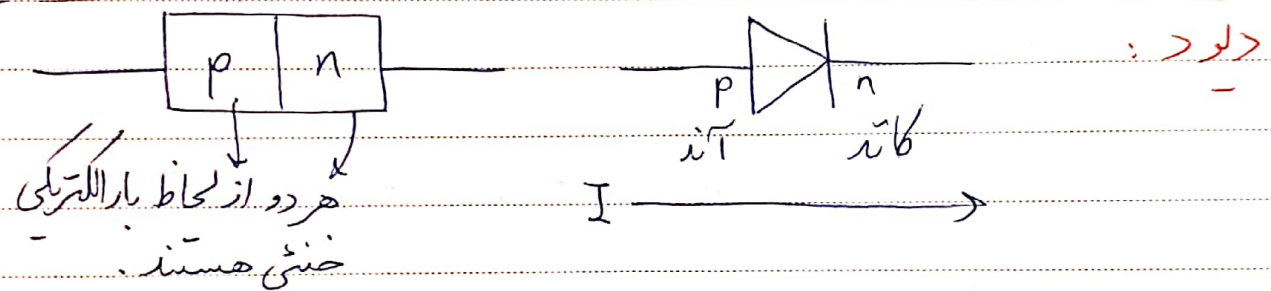 دیود :
p n
p n
آند کاتد
I
هر دو از لحاظ بار الکتریکی
خنثی هستند .